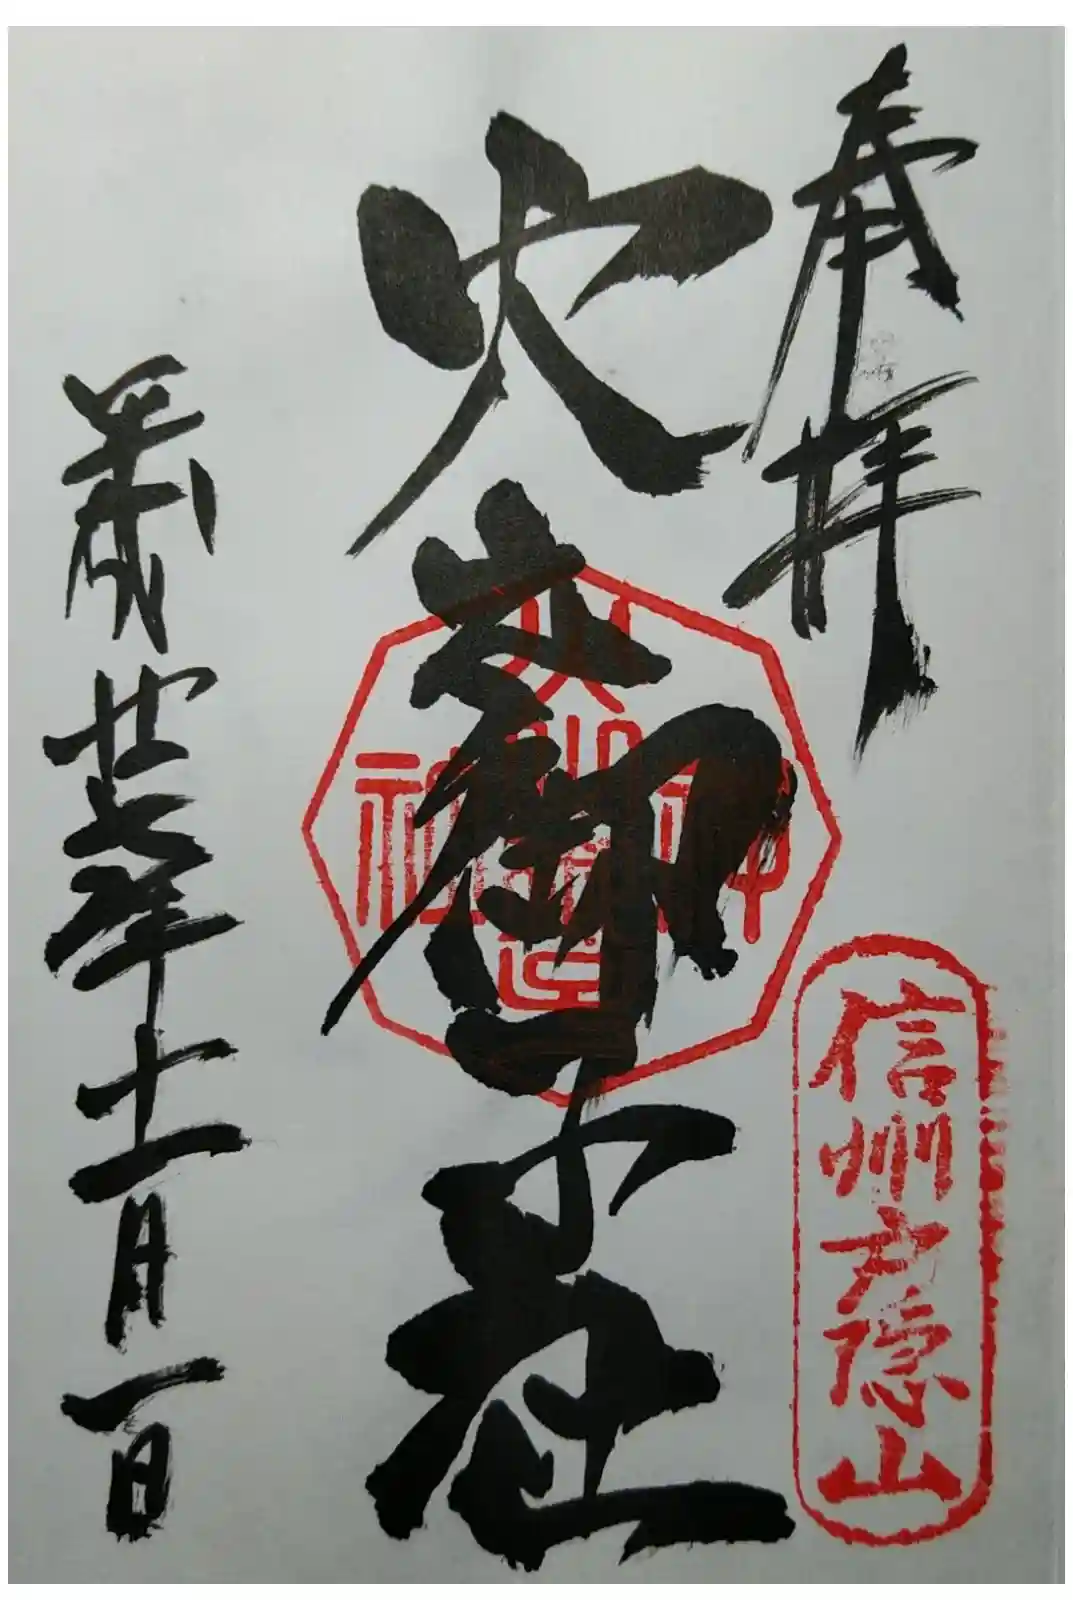 奉拝
信州戸隠山
火之御子社
平成廿七年十一月一日